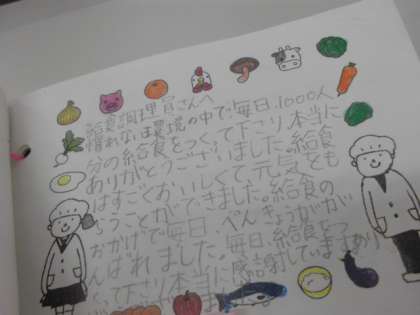 給食調理員さんへ
慣れない環境の中で、毎日、1000人
分の給食をつくって下さり本当に
ありがとうございました。給食
はすごくおいしくて元気をも
らうことができました。給食の
おかげで毎日、べんきょうがが
んばれました。毎日、給食をつ
くって下さり本当に感謝しています。あり